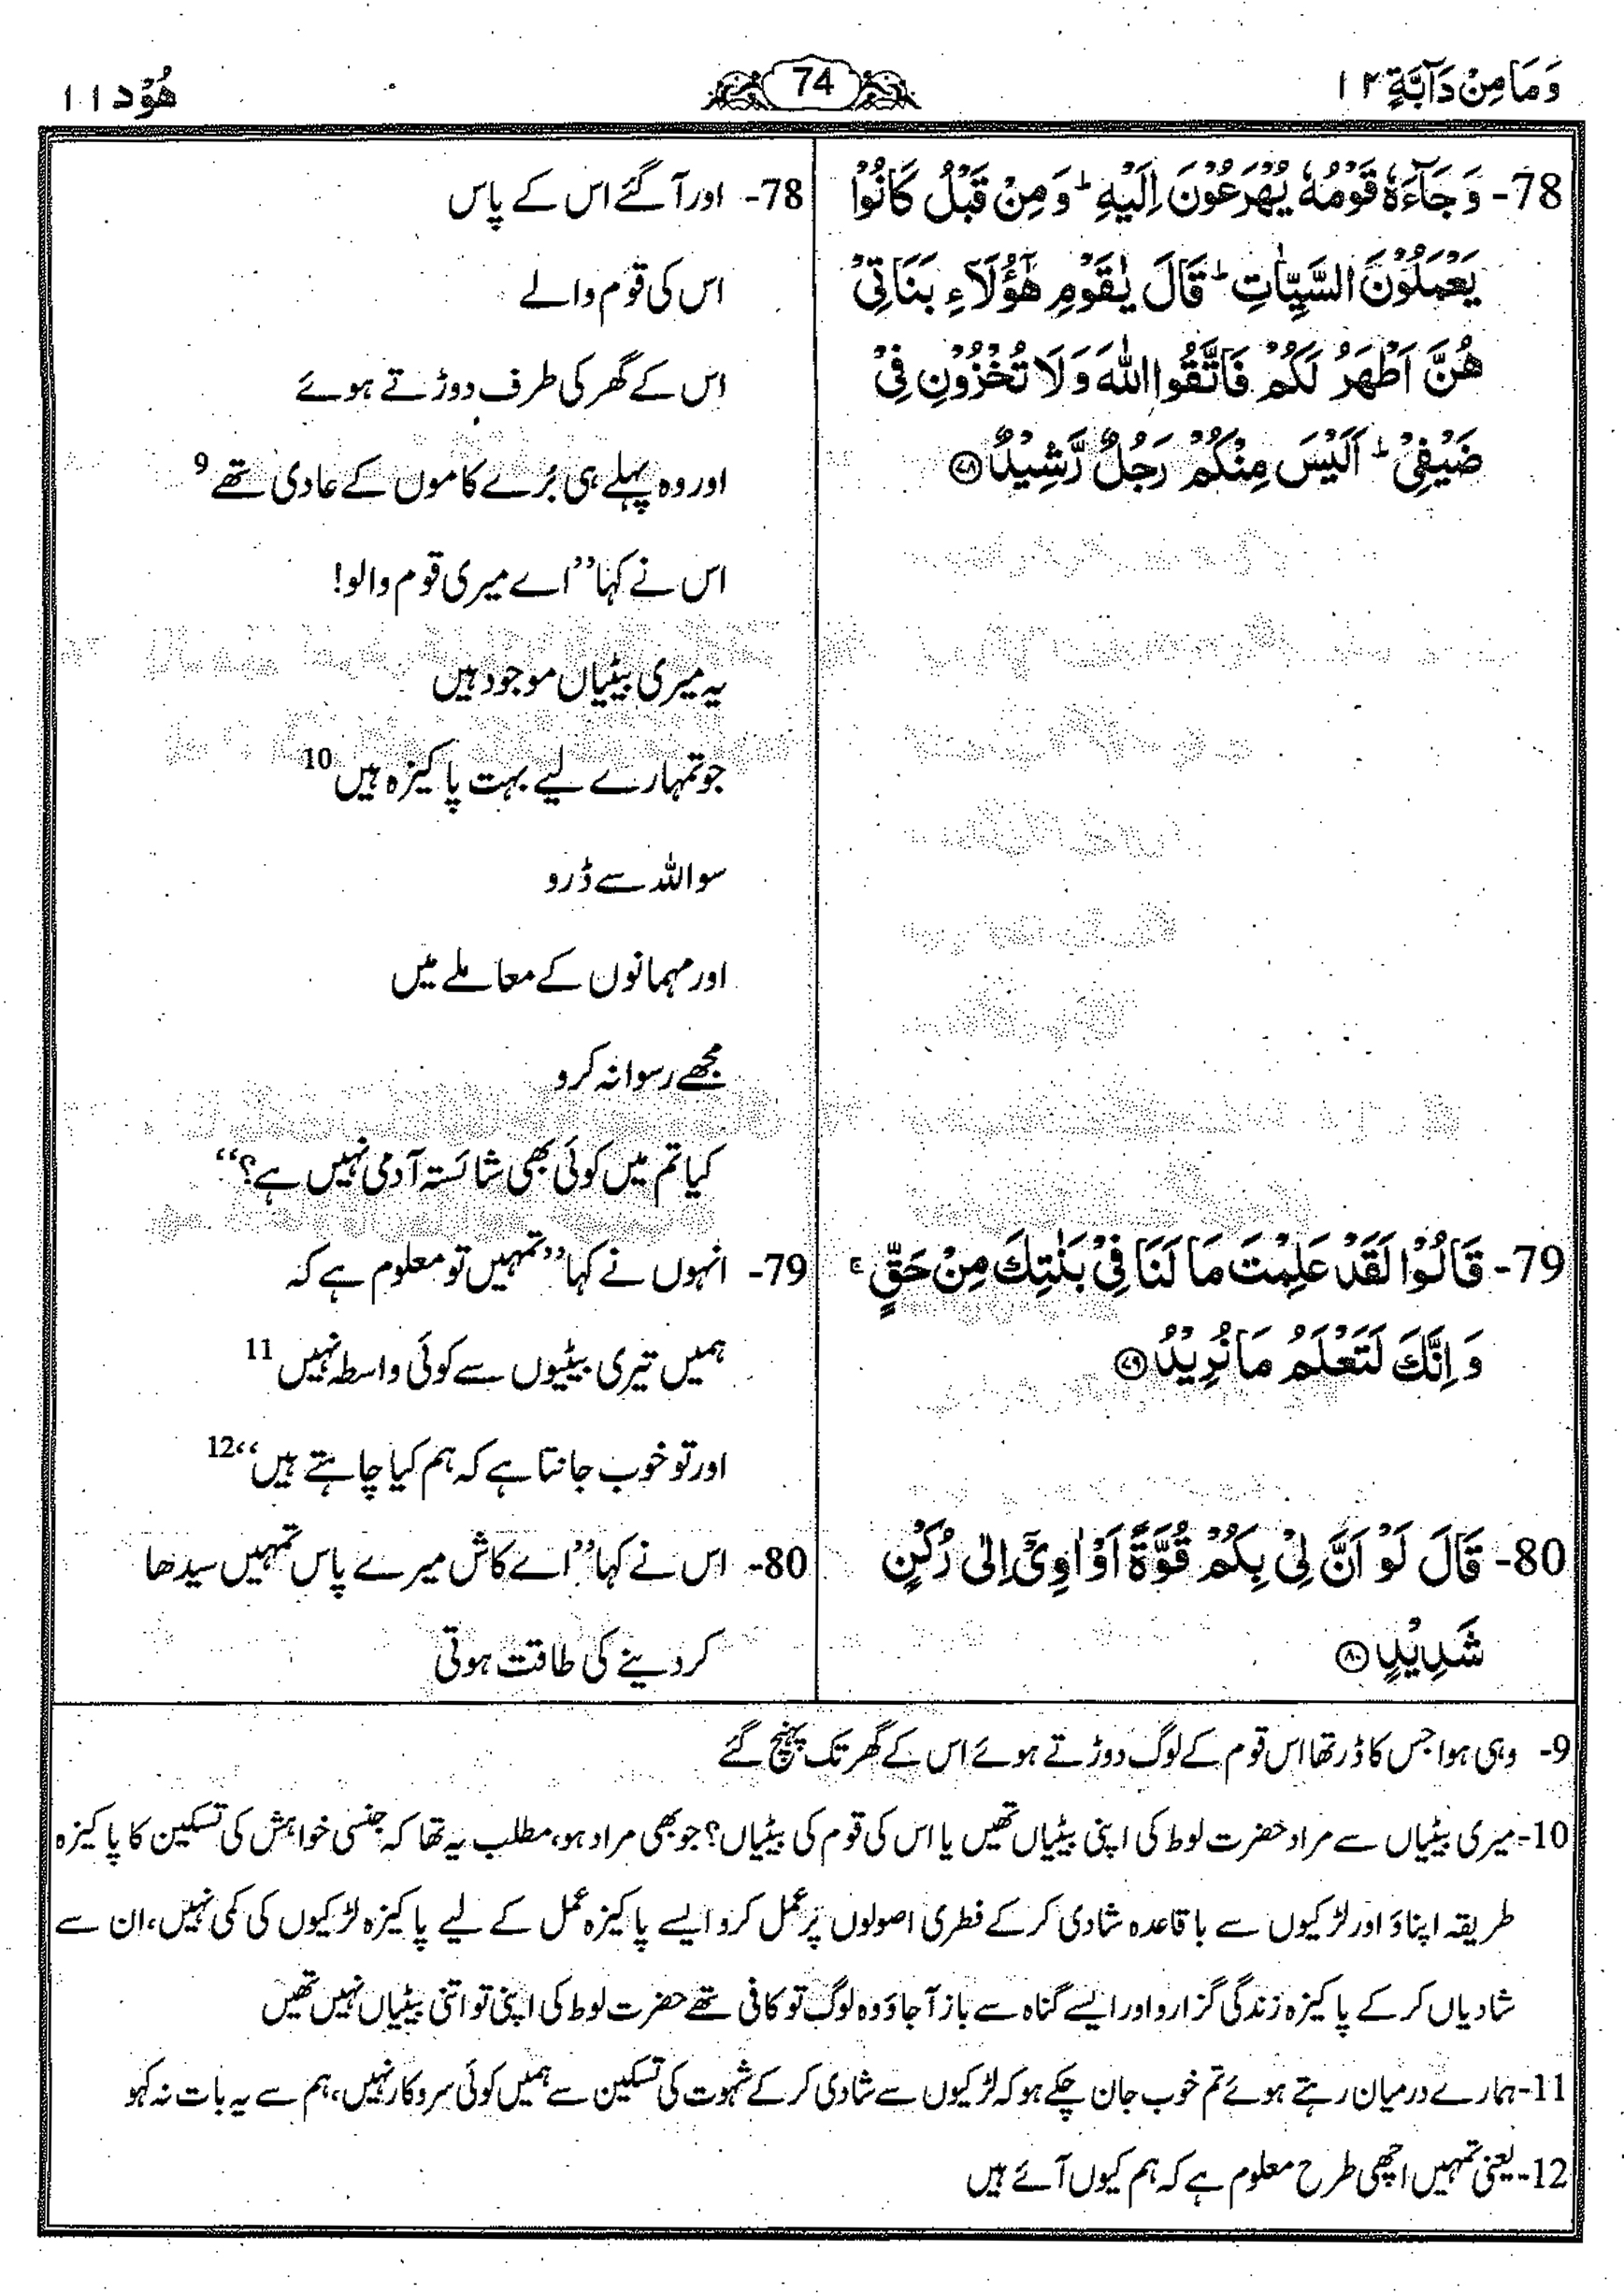 وَمَا مِنْ دَآبَّةٍ ۱۲
74
هُوْد ۱۱
78- وَجَآءَهٗ قَوْمُهٗ يُهْرَعُوْنَ اِلَيْهِ ؕ وَمِنْ قَبْلُ كَانُوْا
يَعْمَلُوْنَ السَّيِّاٰتِ ؕ قَالَ يٰقَوْمِ هٰٓؤُلَآءِ بَنَاتِيْ
هُنَّ اَطْهَرُ لَكُمْ فَاتَّقُوا اللّٰهَ وَلَا تُخْزُوْنِ فِيْ
ضَيْفِيْ ؕ اَلَيْسَ مِنْكُمْ رَجُلٌ رَّشِيْدٌ ﴿۷۸﴾
78- اور آ گئے اس کے پاس
اس کی قوم والے
اس کے گھر کی طرف دوڑتے ہوئے
اور وہ پہلے ہی بُرے کاموں کے عادی تھے 9
اس نے کہا ’’اے میری قوم والو!
یہ میری بیٹیاں موجود ہیں
جو تمہارے لیے بہت پاکیزہ ہیں 10
سو اللہ سے ڈرو
اور مہمانوں کے معاملے میں
مجھے رسوا نہ کرو
کیا تم میں کوئی بھی شائستہ آدمی نہیں ہے؟‘‘
79- قَالُوْا لَقَدْ عَلِمْتَ مَا لَنَا فِيْ بَنٰتِكَ مِنْ حَقٍّ ۚ
وَاِنَّكَ لَتَعْلَمُ مَا نُرِيْدُ ﴿۷۹﴾
79- انہوں نے کہا ’’تمہیں تو معلوم ہے کہ
ہمیں تیری بیٹیوں سے کوئی واسطہ نہیں 11
اور تو خوب جانتا ہے کہ ہم کیا چاہتے ہیں‘‘ 12
80- قَالَ لَوْ اَنَّ لِيْ بِكُمْ قُوَّةً اَوْ اٰوِيْٓ اِلٰى رُكْنٍ
شَدِيْدٍ ﴿۸۰﴾
80- اس نے کہا ’’اے کاش میرے پاس تمہیں سیدھا
کر دینے کی طاقت ہوتی
9- وہی ہوا جس کا ڈر تھا اس قوم کے لوگ دوڑتے ہوئے اس کے گھر تک پہنچ گئے
10- میری بیٹیاں سے مراد حضرت لوط کی اپنی بیٹیاں تھیں یا اس کی قوم کی بیٹیاں؟ جو بھی مراد ہو، مطلب یہ تھا کہ جنسی خواہش کی تسکین کا پاکیزہ
طریقہ اپناؤ اور لڑکیوں سے باقاعدہ شادی کر کے فطری اصولوں پر عمل کرو ایسے پاکیزہ عمل کے لیے پاکیزہ لڑکیوں کی کمی نہیں، ان سے
شادیاں کر کے پاکیزہ زندگی گزارو اور ایسے گناہ سے باز آ جاؤ وہ لوگ تو کافی تھے حضرت لوط کی اپنی تو اتنی بیٹیاں نہیں تھیں
11- ہمارے درمیان رہتے ہوئے تم خوب جان چکے ہو کہ لڑکیوں سے شادی کر کے شہوت کی تسکین سے ہمیں کوئی سروکار نہیں، ہم سے یہ بات نہ کہو
12- یعنی تمہیں اچھی طرح معلوم ہے کہ ہم کیوں آئے ہیں